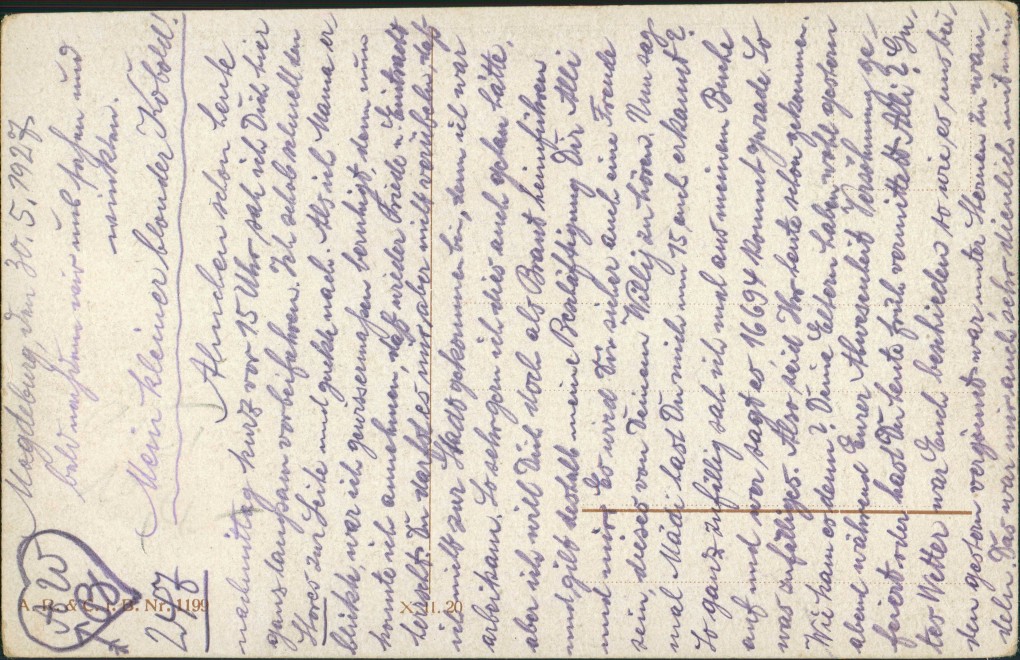 Magdeburg, den 30.5.1927
bald nahen wir uns sehen und
winken.
Mein kleiner blonder Kobold!
A W
207
Ännchen schon heute
nachmittag kurz vor 15 Uhr sah ich Dich hier
ganz langsam vorbeifahren. Ich schob schnell den
Stores zur Seite und guckte nach. Als ich Mama er
blickte, war ich gewissermaßen beruhigt, denn nun
konnte ich annehmen, daß wieder Friede u. Eintracht
besteht. Du darfst es mir aber nicht verübeln, daß
ich nicht zur Stadt gekommen bin, denn ich war
arbeitsam. So sehr gern ich dies auch getan hätte,
aber ich will Dich doch als Braut heimführen
und gilt deshalb meine Beschäftigung Dir Alli
und mir. Es wird Dir sicher auch eine Freude
sein, dieses von Deinem Willy zu hören. Nun sag
mal Mädi hast Du mich um 15 auch erkannt?
So ganz zufällig sah ich mal aus meinem Bude
auf und wer sagt es 16694 kommt gerade. So
was zufälliges. Also seid Ihr heute schon gekommen.
Wie kam es denn? Deine Eltern haben wohl gestern
abend während Eurer Anwesenheit Versöhnung ge
feiert oder hast Du heute früh vermittelt Alli? Gu
tes Wetter war Euch beschieden so wie es uns bei
den gestern vergönnt war unter Sternen zu wan
deln. Das war mir auch sehr dienlich mit mein
A. R. & C. i. B. Nr. 1199
X. II. 20